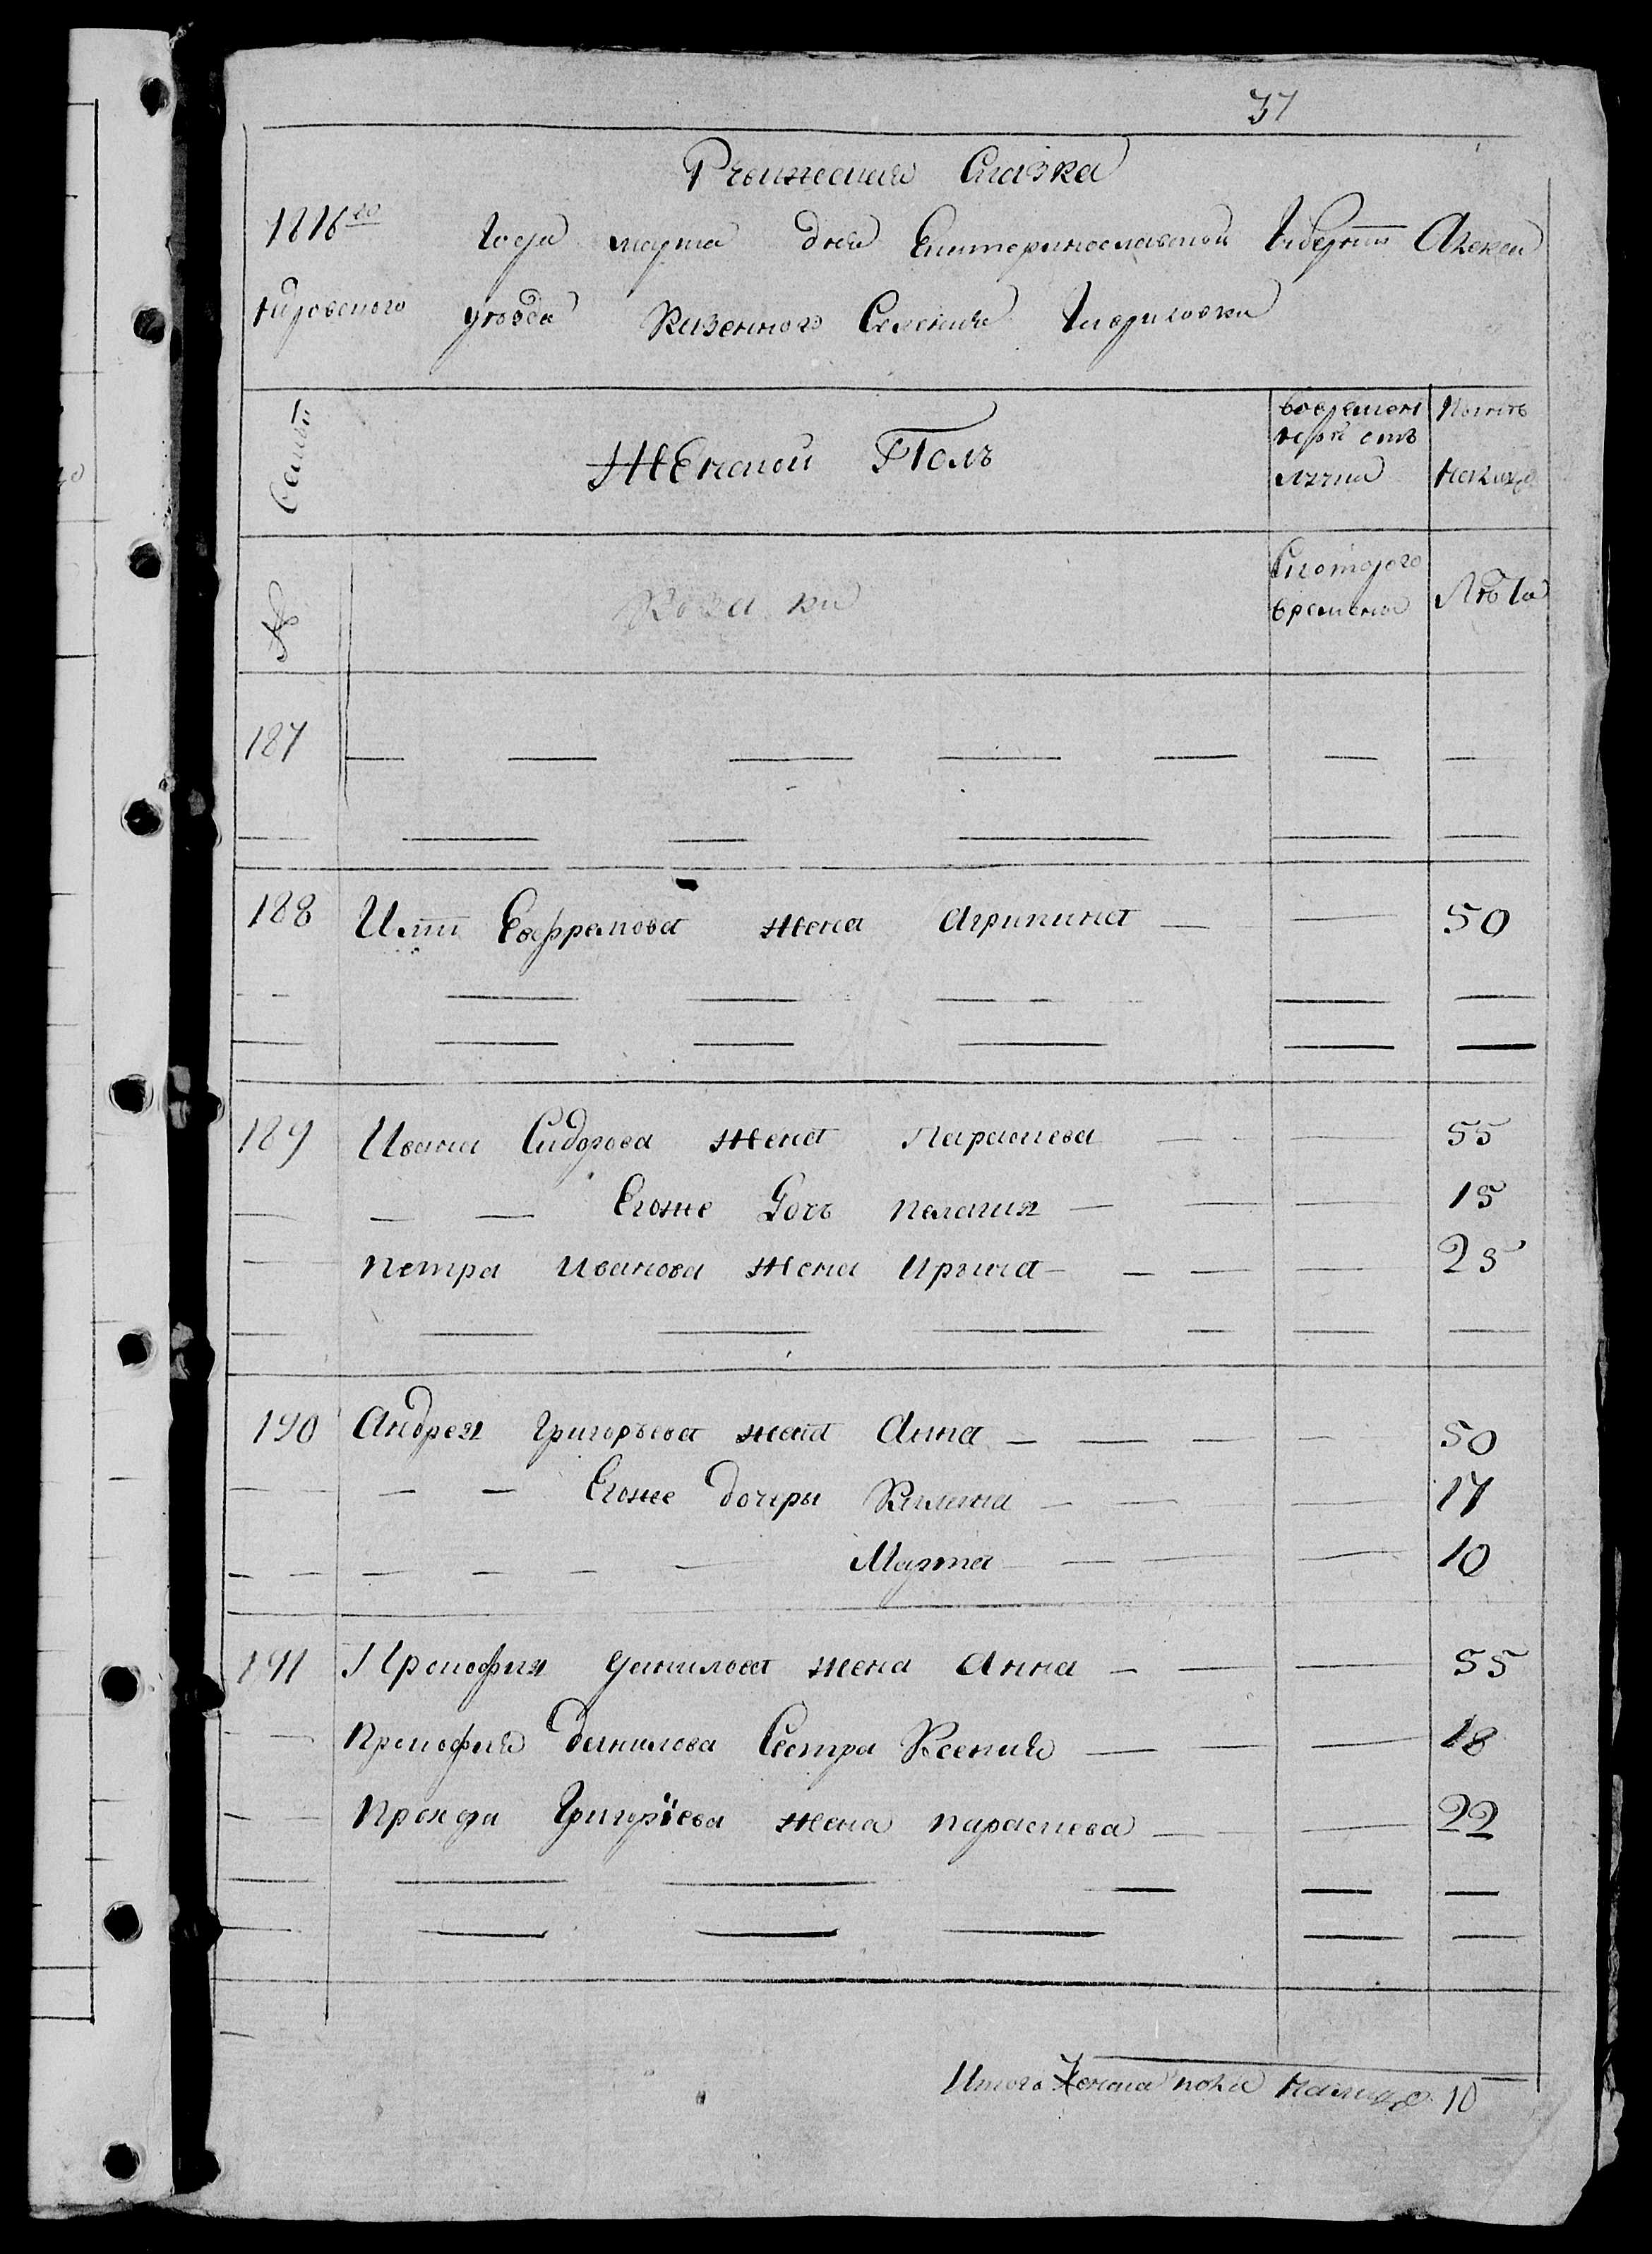 37
Ревижская Сказка
1816го Года марта дня Екатеринославской Губернии Алексан
дровского уезда Казенного Селения Гавриловки
Семьи Женской Полъ вовремен ной отъ лучки Ныне налицо
№ Козачки Скоторого времени Лѣта
187
188 Ефремова жена Агрипина 50
189 Ивана Сидорова жена Параскева 55
Егоже Дочь пелагия 15
петра иванова жена Ирина 25
190 Андрея Григорьева жена Анна 50
Егоже дочеры Килина 17
Марта 10
191 Прокофия данилова жена Анна 55
прокофия данилова Сестра Ксения 18
Григоріева жена параскева 22
Итого Женска пола налицо 10